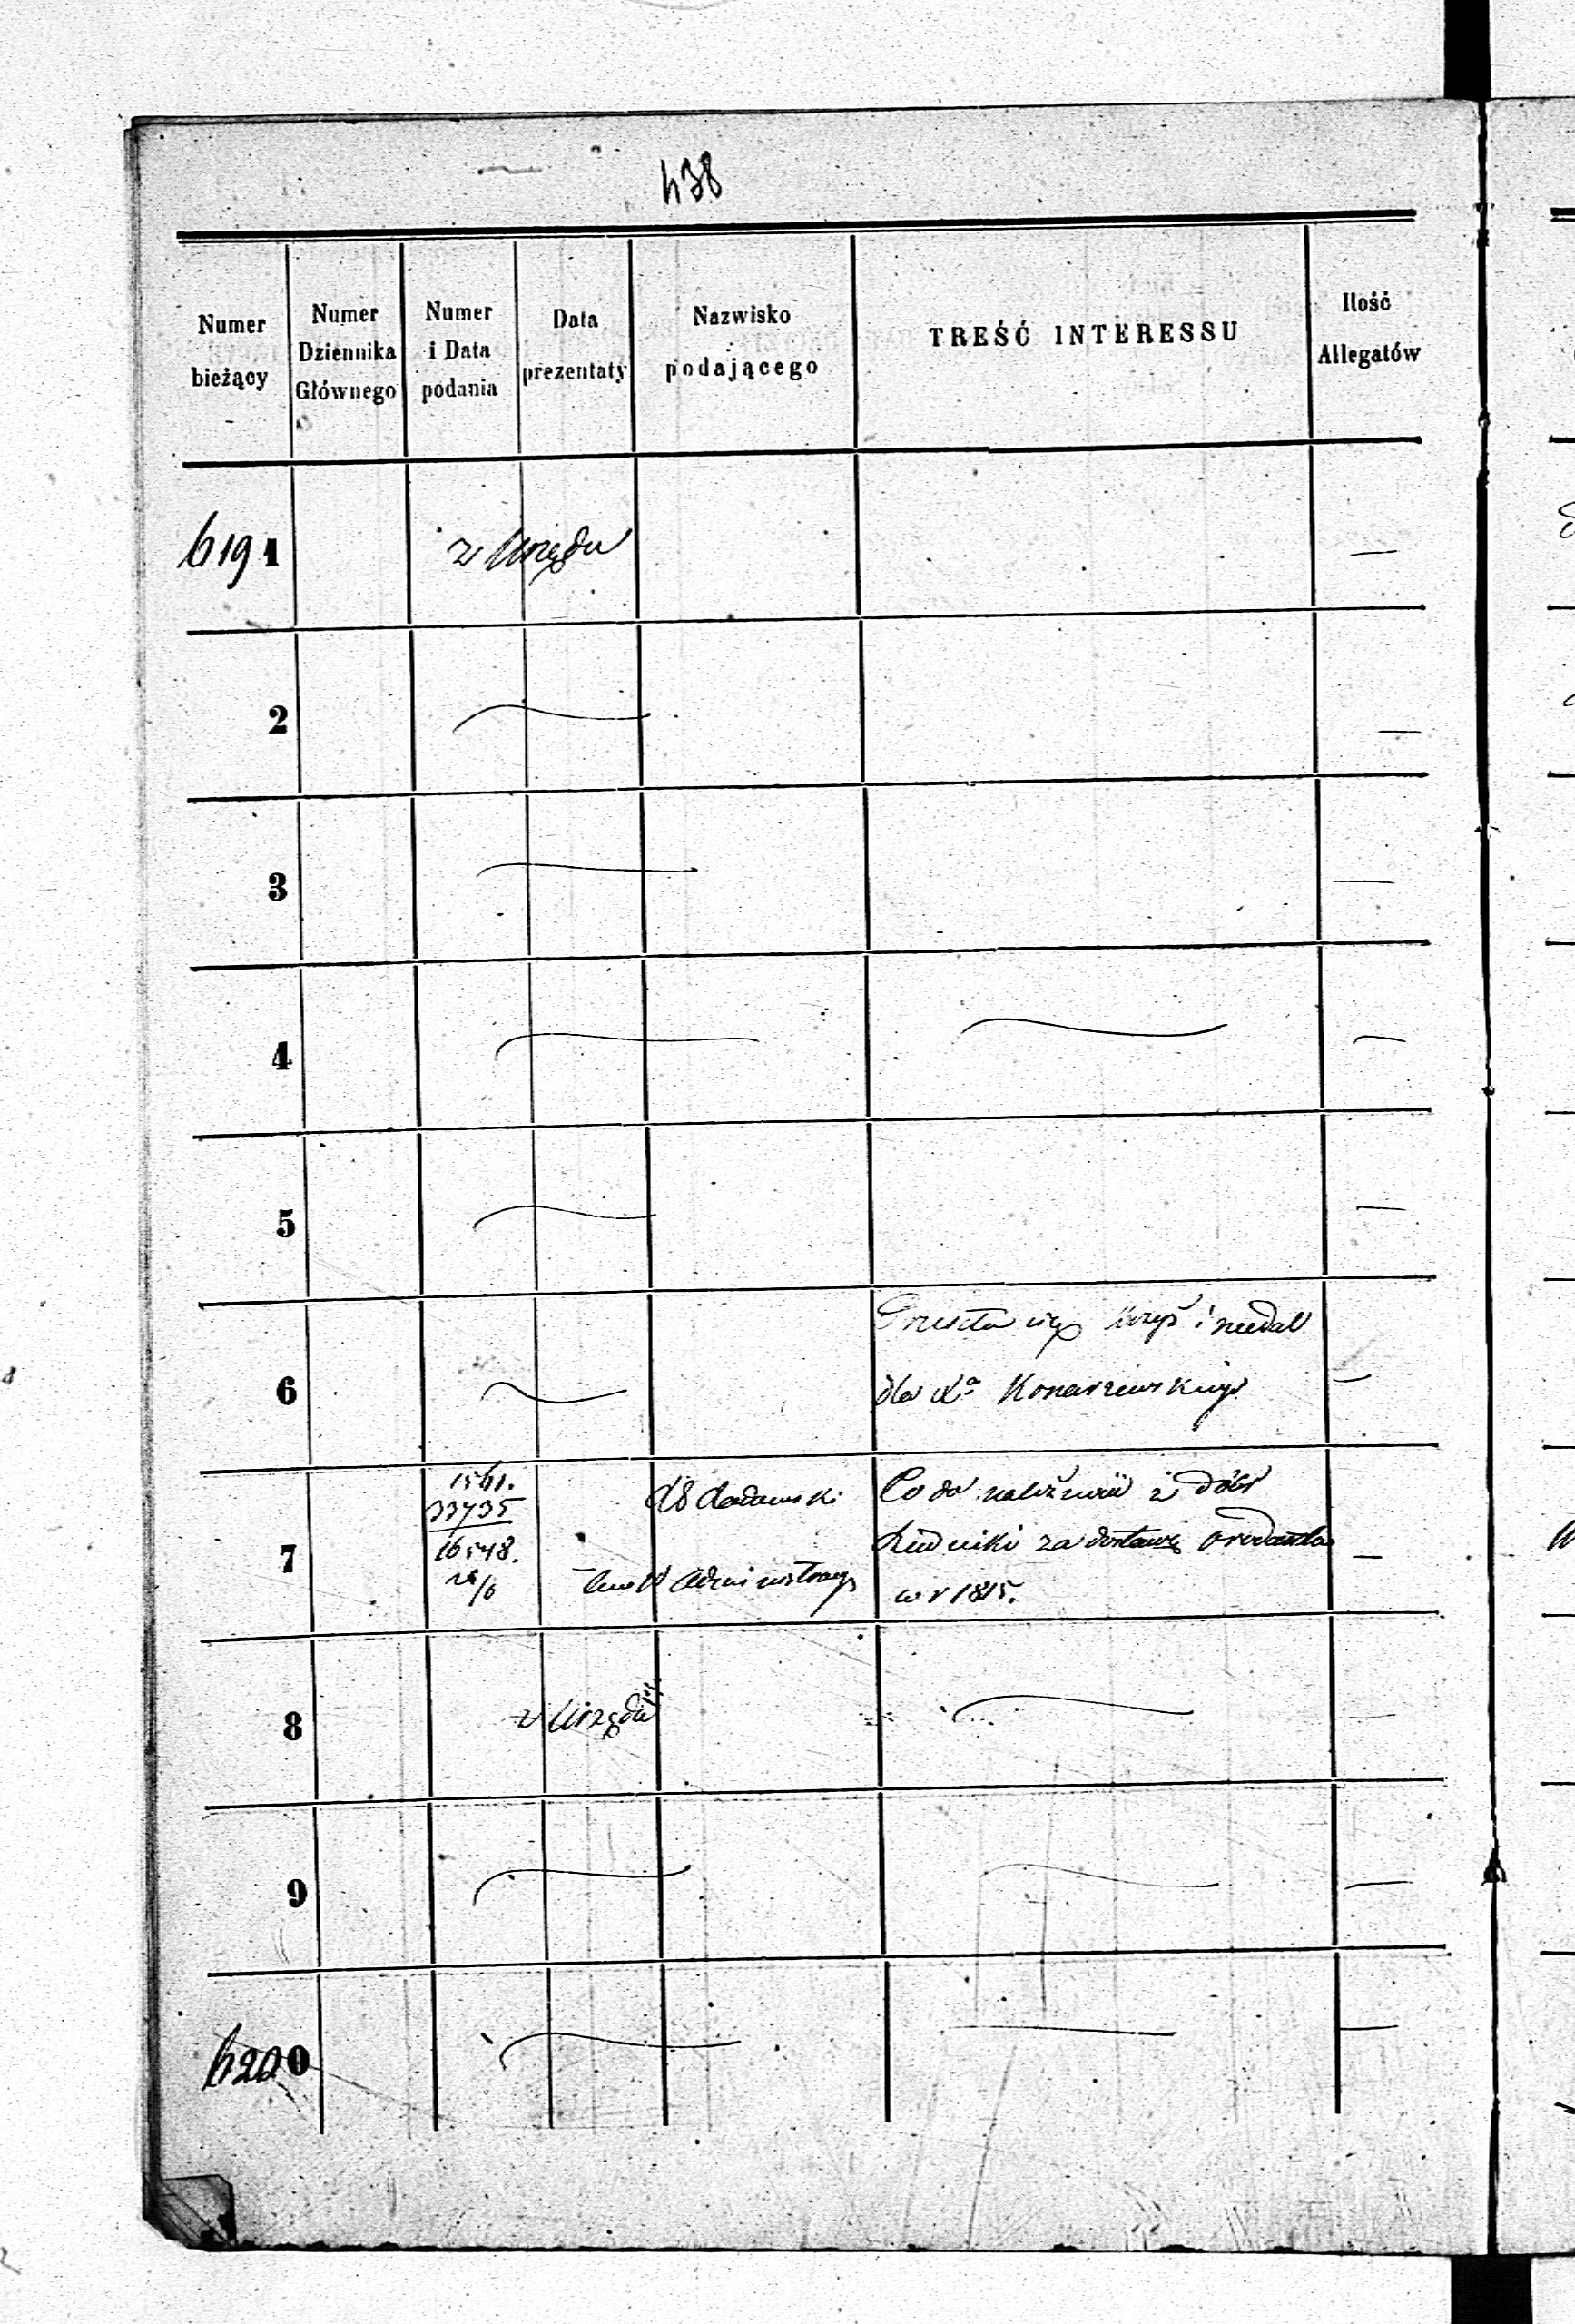 438
Numer bieżący
Numer Dziennika Głównego
Numer i Data podania
Data prezentaty
Nazwisko podającego
TREŚĆ INTERESSU
Ilość Allegatów
6191 z Urzędu —
2 —
3 —
4 —
5 —
6 krzyż i medal
dla Konarzewskiego —
1561.
33735
16548.
7 —
Co do z dóbr
Rudniki za dostawę
w r 1815.
8 z Urzędu —
9 —
6200 —